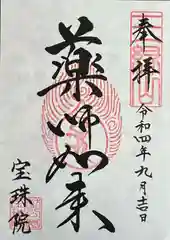 奉拝
令和四年九月吉日
薬師如来
宝珠院